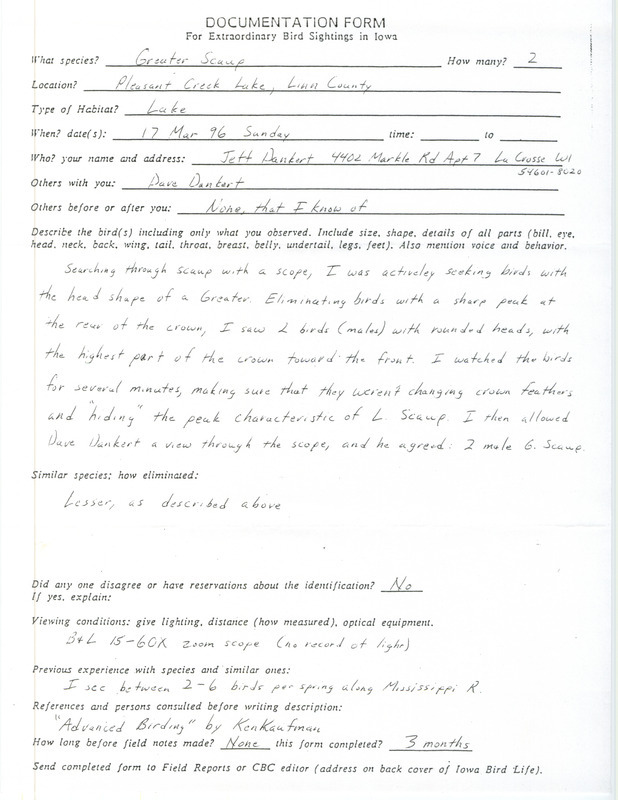 DOCUMENTATION FORM
For Extraordinary Bird Sightings in Iowa
What species? Greater Scaup How many? 2
Location? Pleasant Creek Lake, Linn County
Type of Habitat? Lake
When? date(s): 17 Mar 96 Sunday time: to
Who? your name and address: Jett Dankert 4402 Markle Rd Apt 7 La Crosse WI
54601-8020
Others with you: Dave Dankert
Others before or after you: None, that I know of
Describe the bird(s) including only what you observed. Include size, shape, details of all parts (bill, eye,
head, neck, back, wing, tail, throat, breast, belly, undertail, legs, feet). Also mention voice and behavior.
Searching through scaup with a scope, I was activeley seeking birds with
the head shape of a Greater. Eliminating birds with a sharp peak at
the rear of the crown, I saw 2 birds (males) with rounded heads, with
the highest part of the crown toward the front. I watched the birds
for several minutes, making sure that they weren't changing crown feathers
and "hiding" the peak characteristic of L. Scaup. I then allowed
Dave Dankert a view through the scope, and he agreed: 2 male G. Scaup.
Similar species; how eliminated:
Lesser, as described above
Did any one disagree or have reservations about the identification? No
If yes, explain:
Viewing conditions: give lighting, distance (how measured), optical equipment.
B+L 15-60X zoom scope (no record of light)
Previous experience with species and similar ones:
I see between 2-6 birds per spring along Mississippi R.
References and persons consulted before writing description:
"Advanced Birding" by Ken Kaufman
How long before field notes made? None this form completed? 3 months
Send completed form to Field Reports or CBC editor (address on back cover of Iowa Bird Life).